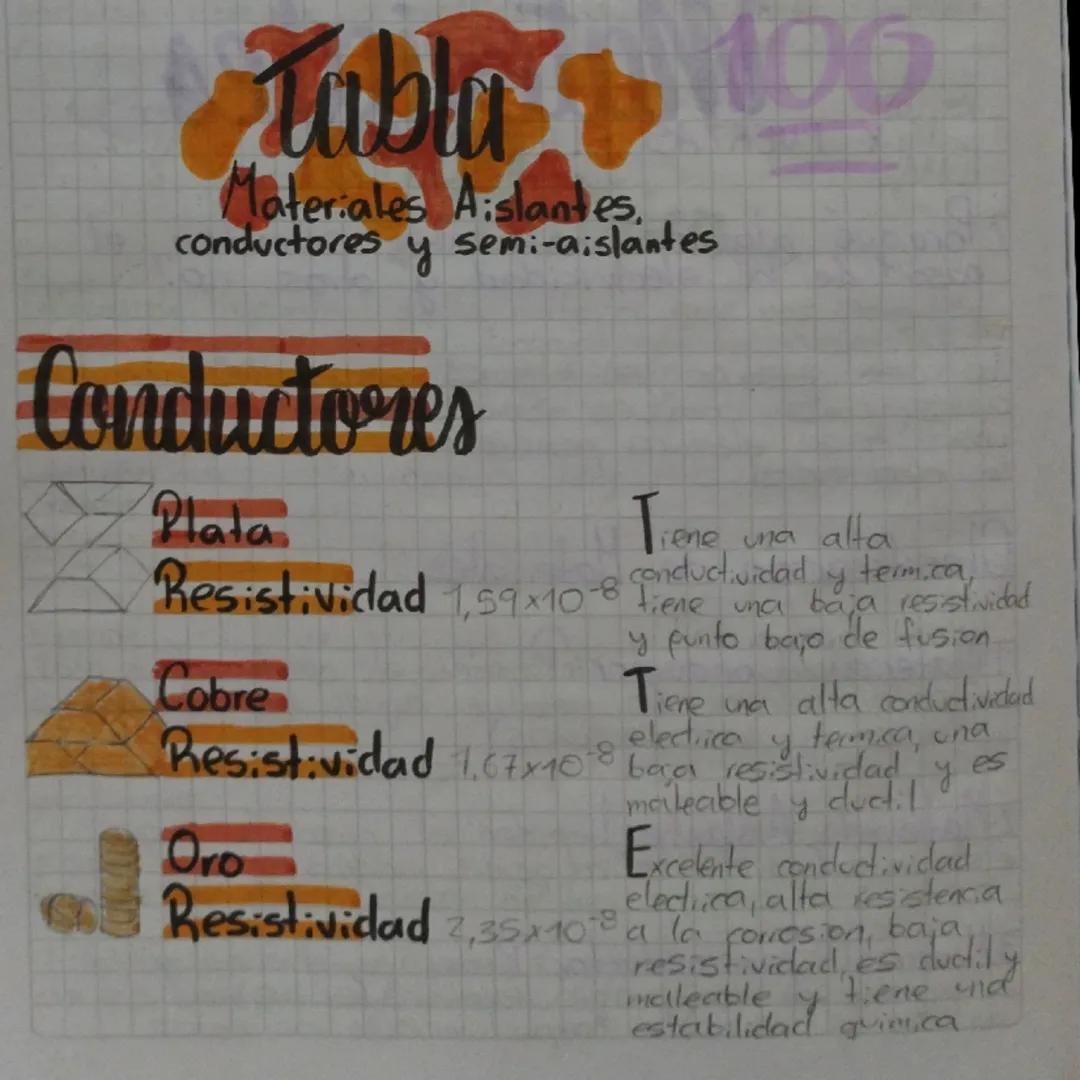 Tabla
100
Materiales Aislantes,
conductores y semi-aislantes
Conductores
Plata
Resistividad 1,59x10-8
Tiene una alta
conductividad y termica,
tiene una baja resistividad
y punto bajo de fusion
Cobre
Resistividad 1,67x10-8
Tiene una alta conductividad
electrica y termica, una
baja resistividad y es
maleable y ductil
Oro
Resistividad 2,35x10-8
Excelente conductividad
electrica, alta resistencia
a la corrosion, baja
resistividad, es ductil y
malleable y tiene una
estabilidad quimica